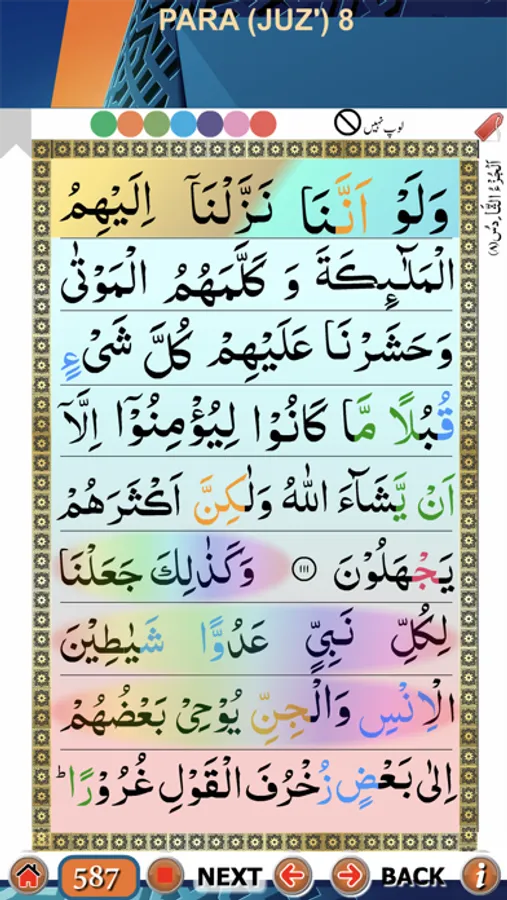 PARA (JUZ') 8
لوپ نہیں
وَلَوْ اَنَّنَا نَزَّلْنَاۤ اِلَيْهِمُ
الْمَلٰٓئِكَةَ وَ كَلَّمَهُمُ الْمَوْتٰى
وَحَشَرْنَا عَلَيْهِمْ كُلَّ شَیْءٍ
قُبُلًا مَّا كَانُوْا لِيُؤْمِنُوْۤا اِلَّاۤ
اَنْ يَّشَآءَ اللّٰهُ وَلٰكِنَّ اَكْثَرَهُمْ
يَجْهَلُوْنَ ١١١ وَكَذٰلِكَ جَعَلْنَا
لِكُلِّ نَبِیٍّ عَدُوًّا شَيٰطِيْنَ
الْاِنْسِ وَالْجِنِّ يُوْحِیْ بَعْضُهُمْ
اِلٰى بَعْضٍ زُخْرُفَ الْقَوْلِ غُرُوْرًا ؕ
587 NEXT BACK i